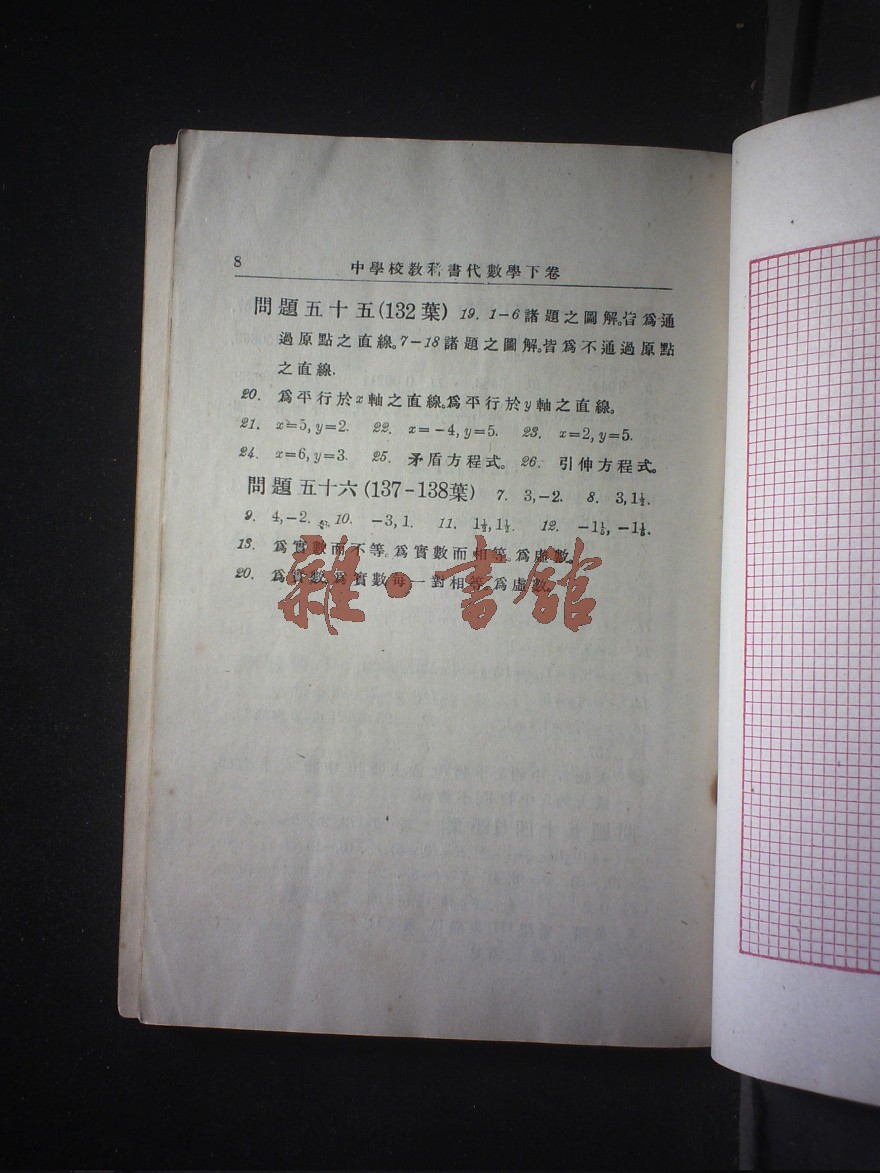 8 中學校敎科書代數學下卷
問題五十五(132葉) 19. 1-6諸題之圖解。皆爲通
過原點之直線。7-18諸題之圖解。皆爲不通過原點
之直線.
20. 爲平行於x軸之直線。爲平行於y軸之直線。
21. x=5, y=2. 22. x=-4, y=5. 23. x=2, y=5.
24. x=6, y=3. 25. 矛盾方程式。 26. 引伸方程式。
問題五十六(137-138葉) 7. 3,-2. 8. 3,1½.
9. 4,-2. 10. -3,1. 11. 12.
13. 爲實數而不等。爲實數而相等。爲虛數。
20. 爲實數。爲實數每一對相等。爲虛數
雜·書館